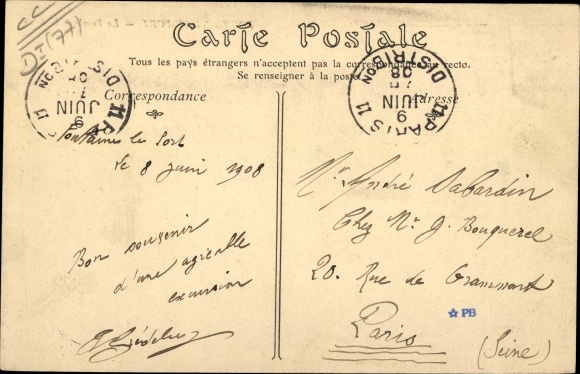 Carte Postale
Tous les pays étrangers n'acceptent pas la correspondance au recto.
Se renseigner à la poste
Correspondance
Adresse
(77)
PARIS 11
DISTRIBUTION
9
JUIN
08
11 PARIS 11
DISTRIBUTION
9
JUIN
08
Fontaine le Port
le 8 juin 1908
Bon souvenir
d'une agréable
excursion
Mr André
Chez Mr J. Bouquerel
20. Rue de Grammont
Paris
(Seine)
PB